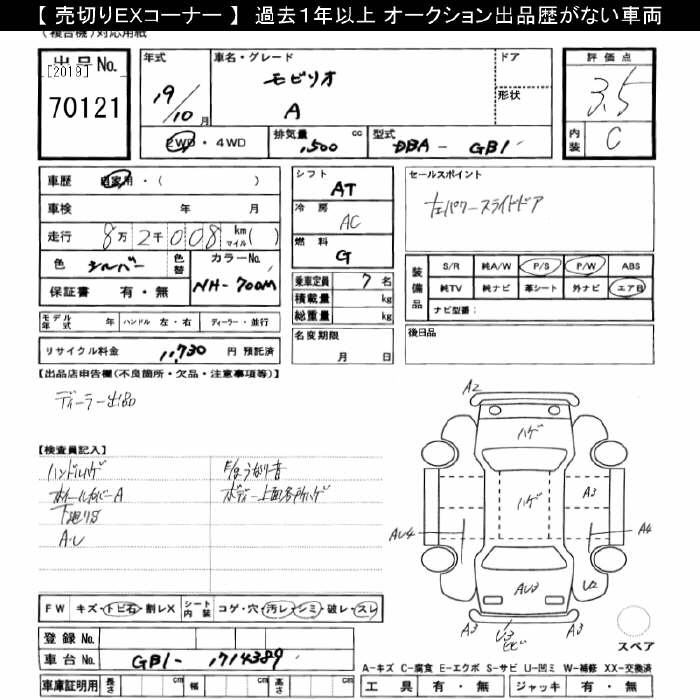 【 売切りEXコーナー 】 過去1年以上 オークション出品歴がない車両
(複合機)対応用紙
出品No.
[2019]
70121
年式
19/10 月
車名・グレード
モビリオ
A
ドア
形状
評価点
3.5
内装
C
2WD・4WD
排気量 1,500 cc
型式 DBA - GB1
車歴 自家用・( )
車検 年 月
走行 8万2千008 km マイル( )
色 シルバー 色替
カラーNo. NH-700M
保証書 有・無
シフト
AT
冷房
AC
燃料
G
乗車定員 7 名
積載量 kg
総重量 kg
名変期限
月 日
セールスポイント
左パワースライドドア
装備品
S/R 純A/W P/S P/W ABS
純TV 純ナビ 革シート 外ナビ エアB
ナビ型番:
後日品
モデル年式 年 ハンドル 左・右 ディーラー・並行
リサイクル料金 11,730 円 預託済
【出品店申告欄(不良箇所・欠品・注意事項等)】
ディーラー出品
【検査員記入】
ハンドルハゲ
ホイールカバーA
下廻り錆
A・U
F/Rうなり音
ボディー上面各所ハゲ
A2
ハゲ
ハゲ
A3
AU4
A4
AU3
U2
A3
U3
A3
スペア
FW キズ・トビ石・割レX シート内装 コゲ・穴・汚レ・シミ・破レ・スレ
登録No.
車台No. GB1- 1714389
車庫証明用 長さ cm 幅 cm 高さ cm
A-キズ C-腐食 E-エクボ S-サビ U-凹ミ W-補修 XX-交換済
工具 有・無 ジャッキ 有・無